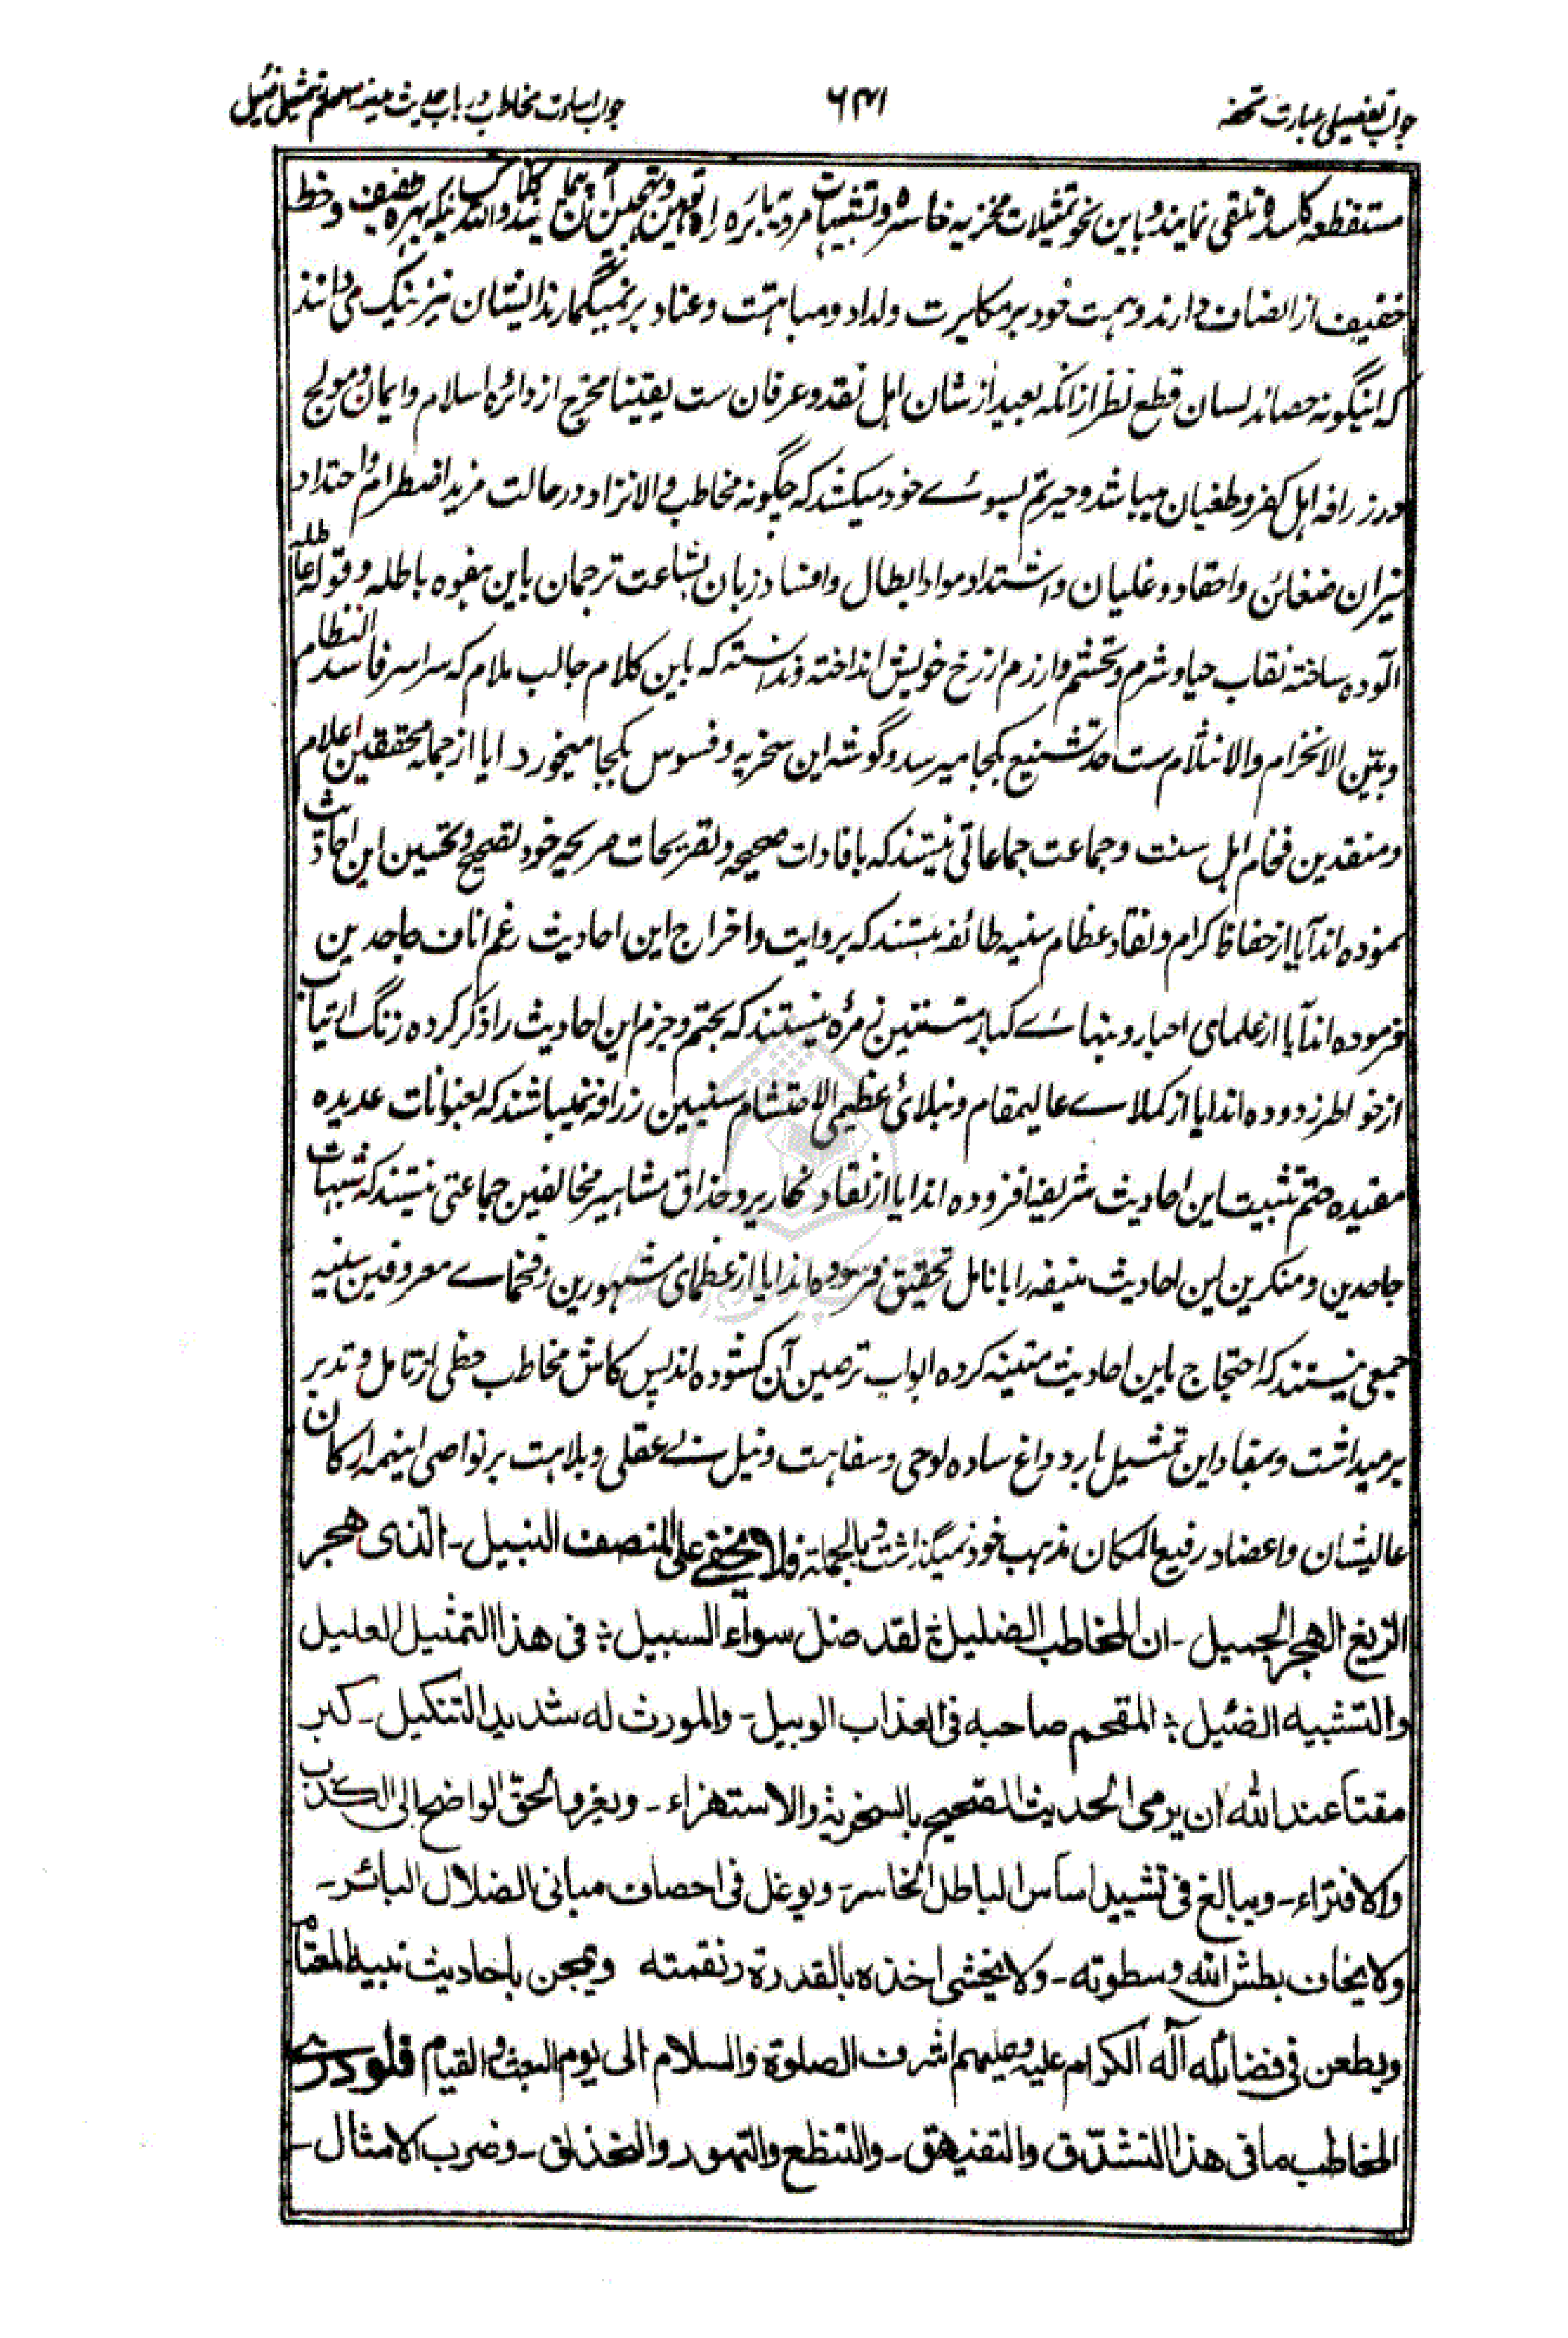 جواب تفصیلی عبارت تحفه
۶۴۱
جواب اساءت مخاطب در باب حدیث سفینه بتمثیل ضئیل
مستفظعه کاسده تلقی نمایند و باین نحو تمثیلات مخزیه خاسره و تشبیهات مردیه بایره راه توهین و تهجین آن پیمایند والله کسانیکه بهره طفیف و حظ
خفیف از انصاف دارند و همت خود بر مکابرت و لداد و مباهتت و عناد بر نمیگمارند ایشان نیز نیک می دانند
که اینگونه حصائد لسان قطع نظر از انکه بعید از شان اهل نقد و عرفان ست یقینا مخرج از دائره اسلام و ایمان و مولج
در زرافه اهل کفر و طغیان میباشد و حیرتم بسوے خود میکشد که چگونه مخاطب والانژاد در حالت مزید اضطرام و احتداد
نیران ضغائن و احقاد و غلیان و اشتداد مواد ابطال و افساد زبان بشاعت ترجمان باین هفوه باطله و قوله عاطله
آلوده ساخته نقاب حیا و شرم و تحشم و ازرم از رخ خویش انداخته و ندانسته که باین کلام جالب ملام که سراسر فاسد النظام
و بیّن الانخرام والانثلام ست حد تشنیع بکجا میرسد و گوشه این سخریه و فسوس بکجا میخورد ایا از جمله محققین اعلام
و منقدین فخام اهل سنت و جماعت جماعاتی نیستند که بافادات صحیحه و تصریحات صریحه خود تصحیح و تحسین این احادیث
نموده اند آیا از حفاظ کرام و نقاد عظام سنیه طائفه نیستند که بروایت و اخراج این احادیث رغم اناف جاحدین
فرموده اند آیا از علمای احبار و نبهاے کبار متسننین زمره نیستند که بحتم و جزم این احادیث را ذکر کرده زنگ ارتیاب
از خواطر زدوده اند ایا از کملاے عالیمقام و نبلائ عظیمی الاحتشام سنیین زرافه نمیباشند که بعنوانات عدیده
مفیده حتم تثبیت این احادیث شریفه افزوده اند ایا از نقاد نحاریر و حذاق مشاهیر مخالفین جماعتی نیستند که شبهات
جاحدین و منکرین این احادیث منیفه را بانامل تحقیق فرسوده اند ایا از عظمای مشهورین و فخماے معروفین سنیه
جمعی نیستند که احتجاج باین احادیث متینه کرده ابواب ترصین آن کشوده اند پس کاش مخاطب حظی از تامل و تدبر
برمیداشت و بمفاد این تمثیل بارد داغ ساده لوحی و سفاهت و نیل بے عقلی و بلاهت بر نواصی اینهمه ارکان
عالیشان و اعضاد رفیع المکان مذهب خود نمیگذاشت و بالجملة فلا یخفی علی المنصف النبیل ـ الّذی هجر
الزیغ الهجر الجمیل ـ ان المخاطب الضلیل ؛ لقد ضل سوآء السبیل ؛ فی هذا التمثیل العلیل
والتشبیه الضئیل ؛ المقحم صاحبه فی العذاب الوبیل ـ والمورث له شدید التنکیل ـ کبر
مقتا عند الله ان یرمی الحدیث الصّحیح بالسخریة والاستهزاء ـ ویعزو الحقّ الواضح الی الکذب
والافتراء ـ ویبالغ فی تشیید اساس الباطل الخاسر ـ ویوغل فی احصاف مبانی الضلال البائر ـ
ولا یخاف بطش الله وسطوته ـ ولا یخشی اخذه بالقدرة ونقمته ویمجن باحادیث نبیه المعتام
ویطعن فی فضائله آله الکرام علیه وعلیهم اشرف الصلوة والسلام الی یوم البعث والقیام فلو دری
المخاطب ما فی هذا التشدّق والتفیهق ـ والتنطع والتهور والتحذلق ـ وضرب الامثال ـ